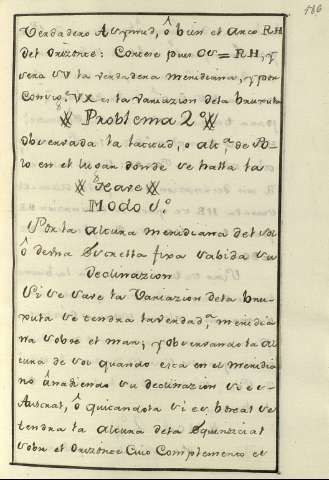 186
Verdadero Azymud, ô bien el arco RH
del Orizonte: Cortese pues OV = RH, y
sera SV la verdadera meridiana, y por
VX es la Variazion dela bruxula
Problema 2º
Observada la latitud, o altª de Po-
lo en el lugar donde se halla la
Nave
Modo 1º
Por la altura meridiana del Sol
ô de una Estrella fixa sabida su
Declinazion
Si se save la Variazion dela bru-
xula se tendra la verdadª meridia
na sobre el mar; y observando la al
tura de Sol quando esta en el meridia
no añadiendo su declinazion si es
Austral, ô quitandola si es boreal se
tendra la altura dela Equinoccial
sobre el Orizonte Cuio Complemento es